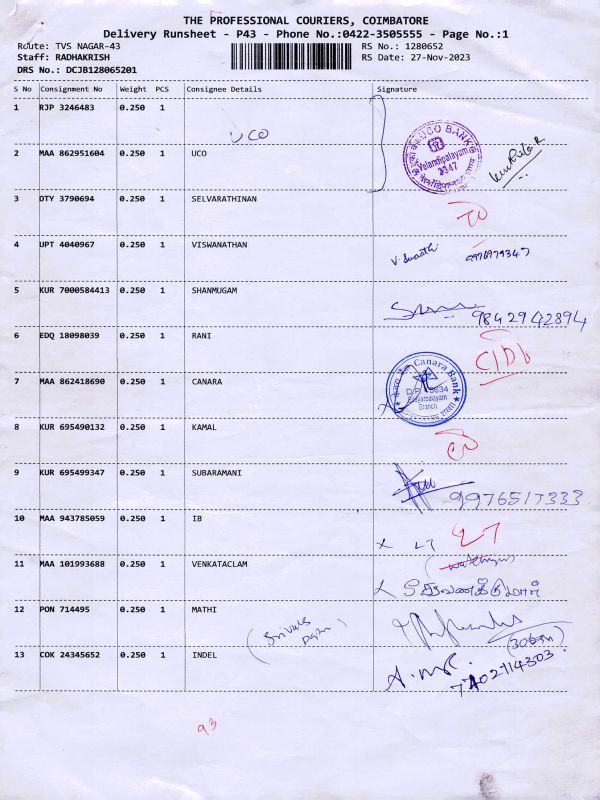 THE PROFESSIONAL COURIERS, COIMBATORE
Delivery Runsheet - P43 - Phone No.:0422-3505555 - Page No.:1
Route: TVS NAGAR-43
RS No.: 1280652
Staff: RADHAKRISH
RS Date: 27-Nov-2023
DRS No.: DCJB128065201
S No Consignment No Weight PCS Consignee Details Signature
1 RJP 3246483 0.250 1
UCO
UCO BANK
Velandipalayam
3347
2 MAA 862951604 0.250 1 UCO
3 DTY 3790694 0.250 1 SELVARATHINAN
4 UPT 4040967 0.250 1 VISWANATHAN
5 KUR 7000584413 0.250 1 SHANMUGAM
9842942894
6 EDQ 18098039 0.250 1 RANI
7 MAA 862418690 0.250 1 CANARA
Canara Bank
Branch
8 KUR 695490132 0.250 1 KAMAL
9 KUR 695499347 0.250 1 SUBARAMANI
9976517333
10 MAA 943785059 0.250 1 IB
11 MAA 101993688 0.250 1 VENKATACLAM
12 PON 714495 0.250 1 MATHI
13 COK 24345652 0.250 1 INDEL
7402114303
93